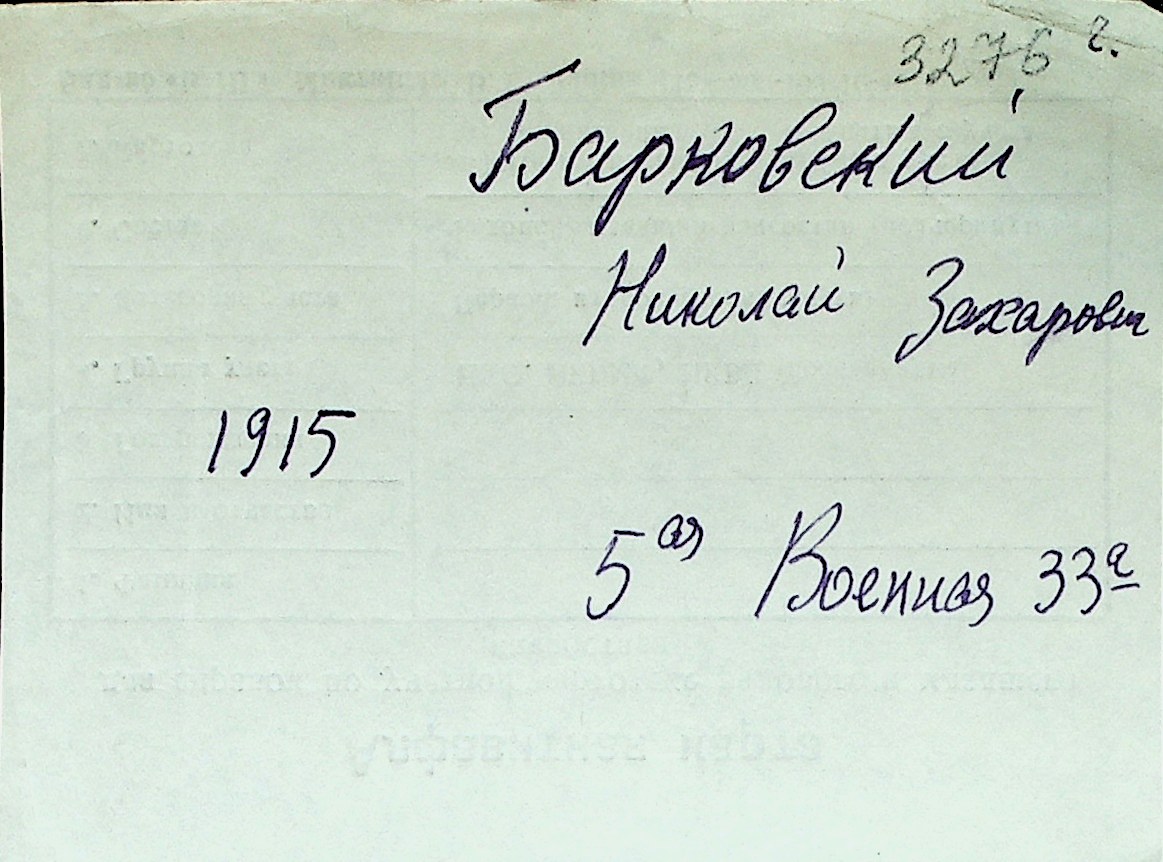 3276 г.
Барковский
Николай Захарович
1915
5ая Военная 33а